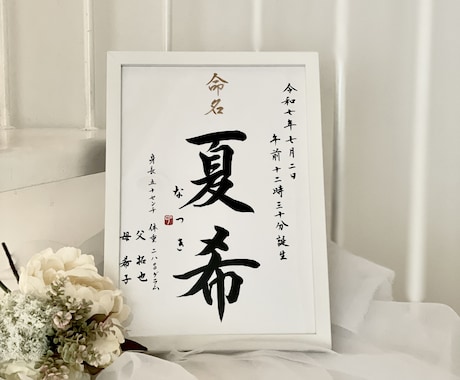 令和七年七月二日
午前十二時三十分誕生
命名
夏希
なつき
身長 五十センチ 体重 二八〇〇グラム
父 拓也
母 寿子